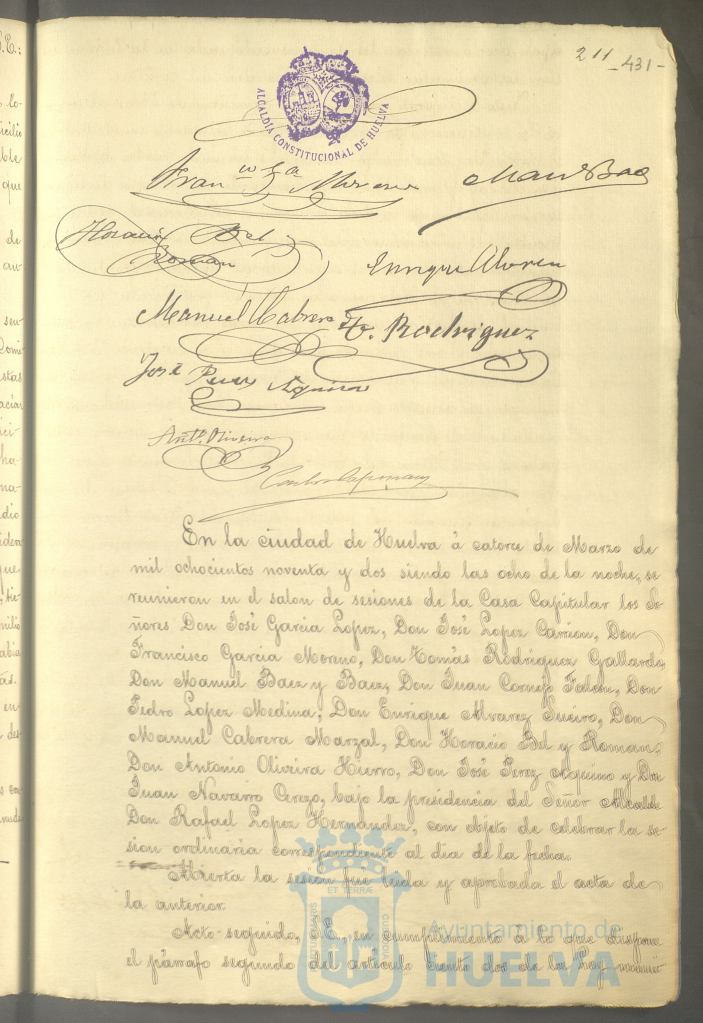 211 -431-
ALCALDÍA CONSTITUCIONAL DE HUELVA
Franco Ga Moreno Man Baez
Horacio Bel
Roman
Enrique Alvarez
Manuel Cabrera To. Rodriguez
José Perez Aquino
Anto. Oliveira
En la ciudad de Huelva á catorce de Marzo de
mil ochocientos noventa y dos siendo las ocho de la noche, se
reunieron en el salon de sesiones de la Casa Capitular los Se
ñores Don José Garcia Lopez, Don José Lopez Carrion, Don
Francisco Garcia Moreno, Don Tomás Rodriguez Gallardo,
Don Manuel Baez y Baez, Don Juan Cornejo Falcon, Don
Pedro Lopez Medina, Don Enrique Alvarez Sueiro, Don
Manuel Cabrera Marzal, Don Horacio Bel y Roman,
Don Antonio Oliveira Hierro, Don José Perez Aquino y Don
Juan Navarro Cerezo, bajo la presidencia del Señor Alcalde
Don Rafael Lopez Hernandez, con objeto de celebrar la se
sion ordinaria correspondiente al dia de la fecha.
Abierta la sesion fue leida y aprobada el acta de
la anterior.
Acto seguido, S.E., en cumplimiento á lo que dispone
el párrafo segundo del artículo ciento dos de la ley munici
Ayuntamiento de
HUELVA